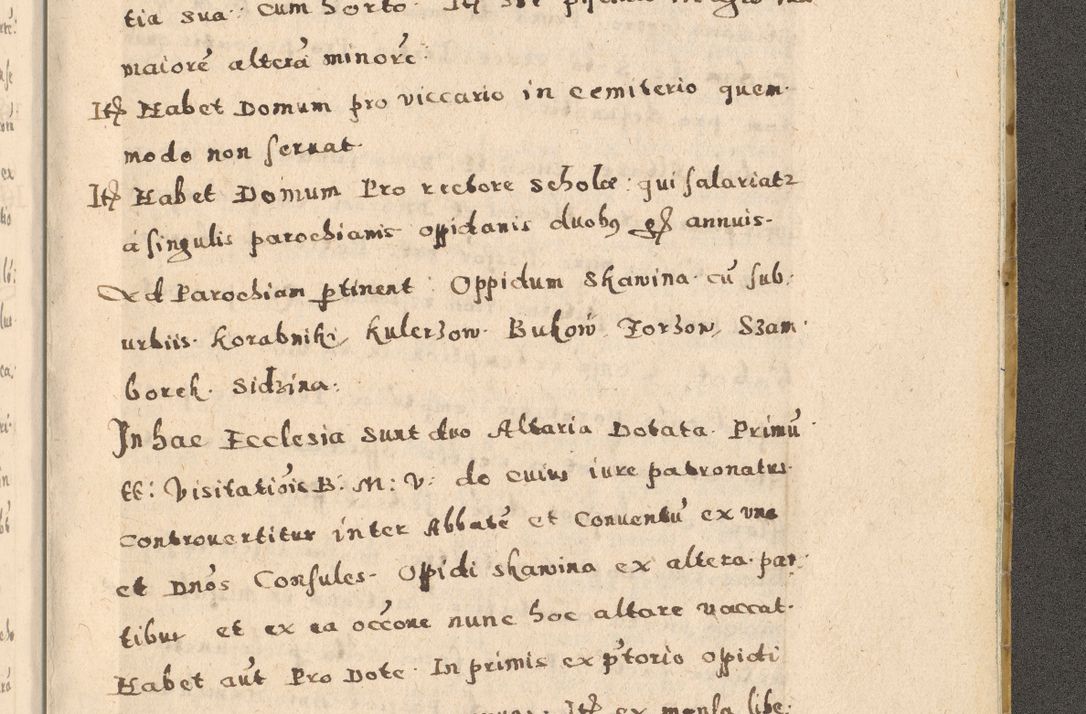 tia sua: cum horto. Itē
maiorē alterā minorē
Itē Habet Domum pro viccario in cemiterio quem-
modo non seruat.
Itē Habet Domum Pro rectore scholæ: qui salariatr
á singulis parochianis oppidanis duobꝰ gs annuis-
Ad Parochiam ꝑtinent: Oppidum Skawina. cū sub:
urbiis. Korabniki, Kulerzow. Bukow, Jorzon, Szam:
borek. Sidzina:
In hac Ecclesia sunt duo Altaria Dotata. Primū
tt: Visitatiōis B: M: V: de cuius iure patronatus.
Controuertitur inter Abbatē et Conuentū ex una
et Dnōs Consules- Oppidi skawina ex altera. par:
tibus et ex ea occōne nunc hoc altare vaccat.
Habet aūt Pro Dote. In primis ex p̄torio oppidi
Itē ex mensa libe: